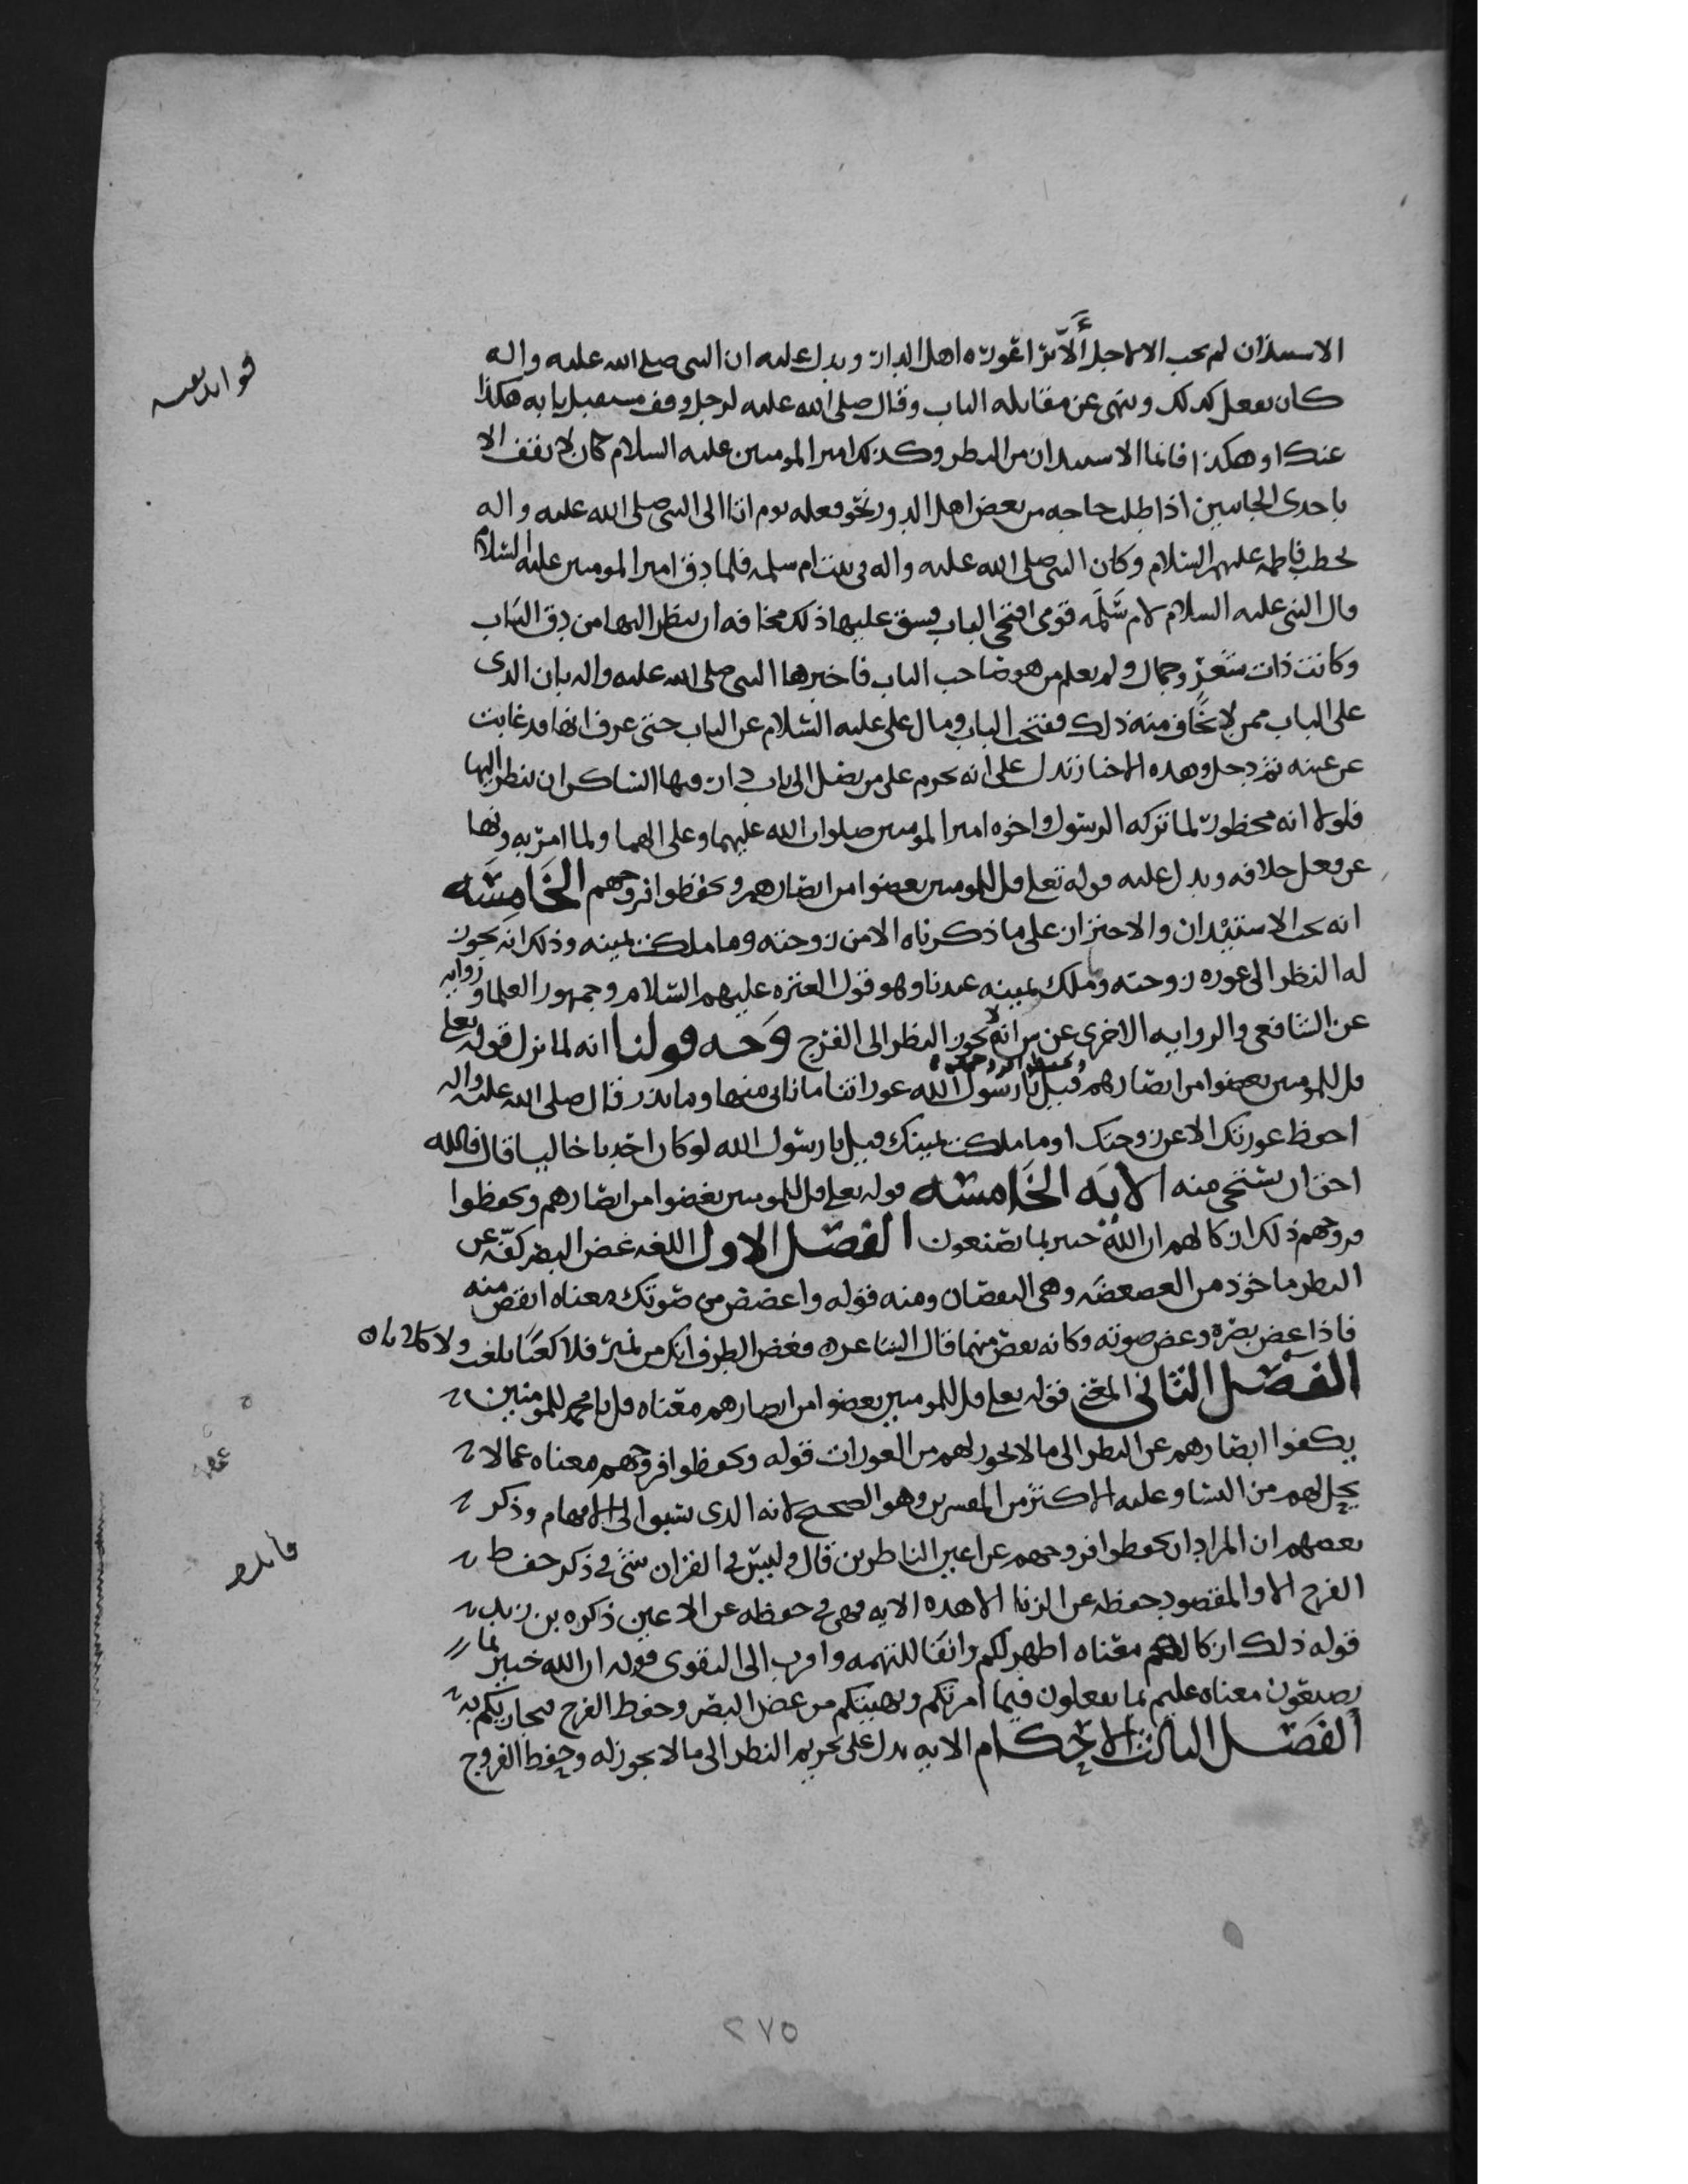 الاستئذان لم يجب الا لاجل ألّا ترا عورة اهل الدار ويدل عليه ان النبي صلى الله عليه واله
كان يفعل كذلك وينهى عن مقابله الباب وقال صلى الله عليه لرجل وقف مستقبل بابه هكذا
عنك او هكذا فانما الاستئذان من النظر وكذلك امير المومنين عليه السلام كان لا يقف الا
باحدى الجانبين اذا طلب حاجه من بعض اهل الدور نحو فعله يوم اتا الى النبي صلى الله عليه واله
يخطب فاطمه عليهم السلام وكان النبي صلى الله عليه واله في بيت ام سلمه فلما دق امير المومنين عليه السلام
قال النبي عليه السلام لام سَلَمَه قومي افتحي الباب فشق عليها ذلك مخافه ان ينظر اليها من دق الباب
وكانت ذات وجمال ولم يعلم من هو صاحب الباب فاخبرها النبي صلى الله عليه واله بان الذي
على الباب ممن لا يخاف منه ذلك ففتحت الباب ومال علي عليه السلام عن الباب حتى عرف انها قد غابت
عن عينه ثم دخل وهذه الاخبار تدل على انه يحرم على من يصل الى باب دار فيها الساكن ان ينظر اليها
فلولا انه محظور لما تركه الرسول واخوه امير المومنين صلوات الله عليهما وعلى الهما ولما امر به ونها
عن فعل خلافه ويدل عليه قوله تعلى قل للمومنين يغضوا من ابصارهم ويحفظوا فروجهم الخَامِسَه
انه يجب الاستيْذان والاحتراز على ما ذكرناه الا من زوجته وما ملكت يمينه وذلك انه يجوز
له النظر الى عوره زوجته وملك يمينه عندنا وهو قول العتره عليهم السلام وجمهور العلما وروايه
عن الشافعي والروايه الاخرى عن انه لا يجوز النظر الى الفرج وَجه قولنا انه لما نزل قوله تعلى
قل للمومنين يغضوا من ابصارهم ويحفظوا فروجهم قيل يا رسول الله عوراتنا ما ناتي منها وما نذر قال صلى الله عليه واله
احفظ عورتك الا عن زوجتك او ما ملكت يمينك قيل يا رسول الله لو كان احدنا خاليا قال فالله
احق ان يستحى منه الايَه الخَامسَه قوله تعلى قل للمومنين يغضوا من ابصارهم ويحفظوا
فروجهم ذلك ازكا لهم ان الله خبير بما يصنعون الفصَل الاول اللغه غض البصر كفّه عن
النظر ماخوذ من الغضغضَه وهي النقصان ومنه قوله واغضض من صوتك معناه انقص منه
فاذا غض بصره وغض صوته وكانه نقص منهما قال الشاعر فغض الطرف انك من نمير فلا كعبًا بلغت ولا كلابا
الفصَل الثاني المعنى قوله تعلى قل للمومنين يغضوا من ابصارهم معناه قل يا محمد للمومنين
يكفوا ابصارهم عن النظر الى ما لا يجوز لهم من العورات قوله ويحفظوا فروجهم معناه عما لا
يحل لهم من النسا وعليه الاكثر من المفسرين وهو الصحيح لانه الذي يسبق الى الافهام وذكر
بعضهم ان المراد ان يحفظوا فروجهم عن اعين الناظرين قال وليس في القران شي في ذكر حفظ
الفرج الا والمقصود حفظه عن الزنا الا هذه الايه فهي في حفظه عن الاعين ذكره بن زيد
قوله ذلك ازكا لهم معناه اطهر لكم وانقا للتهمه واقرب الى التقوى قوله ان الله خبير بما
يصنعون معناه عليم بما يفعلون فيما امرتكم ونهيتكم من غض البصر وحفظ الفرج فيجازيكم به
الفصَل الثالث الاحكام الايه تدل على تحريم النظر الى ما لا يجوز له وحفظ الفروج
فوائد
فائده
٢٧٥